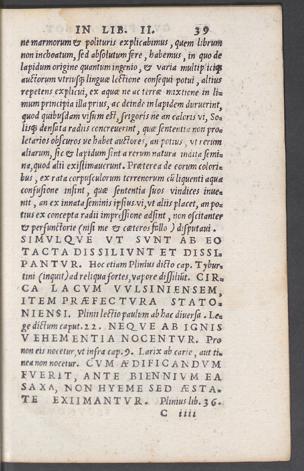 IN LIB. II. 39
ne marmorum & polituris explicabimus, quem librum
non inchoatum, sed absolutum fere, habemus, in quo de
lapidum origine quantum ingenio, & varia multiplicique
auctorum vtriusque linguæ lectione consequi potui, altius
repetens explicui, ex aqua ne ac terræ mixtione in li
mum principia illa prius, ac deinde in lapidem duruerint,
quod quibusdam visum est, frigoris ne an caloris vi, So-
lisque densata radios concreuerint, quæ sententia non pro
letarios obscuros ve habet auctores, an potius, vt rerum
aliarum, sic & lapidum sint a rerum natura indita semi-
na, quod alii existimauerunt. Præterea de eorum colori-
bus, ex rata corpusculorum terrenorum cū liquenti aqua
confusione insint, quæ sententia suos vindices inue-
nit, an ex innata seminis ipsius vi, vt aliis placet, an po
tius ex concepta radii impressione adsint, non oscitanter
& perfunctorie (nisi me & cæteros fallo) disputaui.
SIMVLQVE VT SVNT AB EO
TACTA DISSILIVNT ET DISSI-
PANTVR. Hoc etiam Plinius dicto cap. Tybur-
tini (inquit) ad reliqua fortes, vapore dissiliūt. CIR-
CA LACVM VVLSINIENSEM,
ITEM PRÆFECTVRA STATO-
NIENSI. Plinii lectio paulum ab hac diuersa. Le-
ge dictum caput. 22. NEQVE AB IGNIS
VEHEMENTIA NOCENTVR. Pro
non eis nocetur, vt infra cap. 9. Larix ab carie, aut ti-
nea non nocetur. CVM ÆDIFICANDVM
FVERIT, ANTE BIENNIVM EA
SAXA, NON HYEME SED ÆSTA-
TE EXIMANTVR. Plinius lib. 36.
C iiii